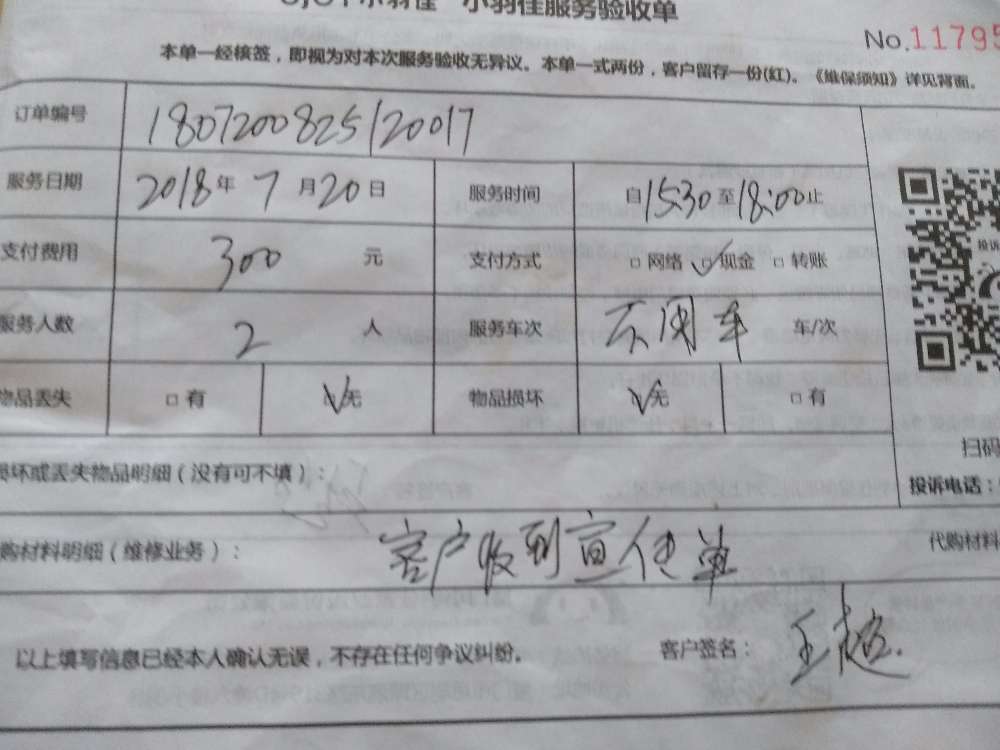 小羽佳服务验收单
No.11795
本单一经核签，即视为对本次服务验收无异议。本单一式两份，客户留存一份(红)。《维保须知》详见背面。
订单编号 1807200825120017
服务日期 2018年7月20日 服务时间 自15:30至18:00止
支付费用 300 元 支付方式 □ 网络 ☑ 现金 □ 转账
服务人数 2 人 服务车次 不用车 车/次
物品丢失 □ 有 ☑ 无 物品损坏 ☑ 无 □ 有
损坏或丢失物品明细（没有可不填）：
扫码
投诉
投诉电话：
购材料明细（维修业务）： 客户收到宣传单 代购材料
以上填写信息已经本人确认无误，不存在任何争议纠纷。 客户签名： 王超